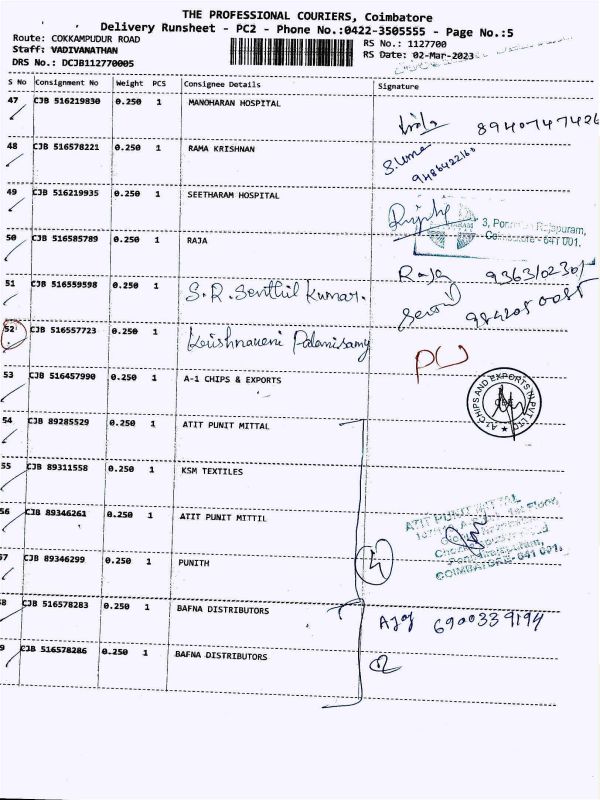 THE PROFESSIONAL COURIERS, Coimbatore
Delivery Runsheet - PC2 - Phone No.:0422-3505555 - Page No.:5
Route: COKKAMPUDUR ROAD RS No.: 1127700
Staff: VADIVANATHAN RS Date: 02-Mar-2023
DRS No.: DCJB112770005
S No Consignment No Weight PCS Consignee Details Signature
47 CJB 516219830 0.250 1 MANOHARAN HOSPITAL 8940747426
48 CJB 516578221 0.250 1 RAMA KRISHNAN S.Uma 9486422160
49 CJB 516219935 0.250 1 SEETHARAM HOSPITAL
3, Ponnaian Rajapuram,
Coimbatore - 641 001.
50 CJB 516585789 0.250 1 RAJA Raja
51 CJB 516559598 0.250 1 S.R. Senthil Kumar.
52 CJB 516557723 0.250 1 Krishnaveni Palanisamy
53 CJB 516457990 0.250 1 A-1 CHIPS & EXPORTS
A1 CHIPS AND EXPORTS IN PVT LTD
54 CJB 89285529 0.250 1 ATIT PUNIT MITTAL
55 CJB 89311558 0.250 1 KSM TEXTILES
56 CJB 89346261 0.250 1 ATIT PUNIT MITTIL
ATIT PUNIT MITTAL
1st Floor,
COIMBATORE - 641 001.
57 CJB 89346299 0.250 1 PUNITH 4
8 CJB 516578283 0.250 1 BAFNA DISTRIBUTORS Ajay 6900339194
9 CJB 516578286 0.250 1 BAFNA DISTRIBUTORS 2